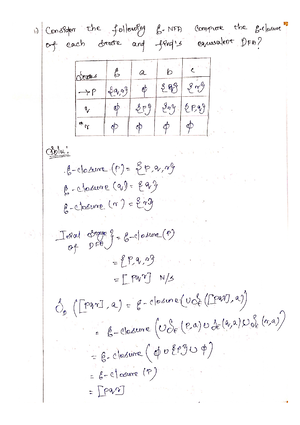 1) Consider the following ε-NFA compute the ε-closure
of each state and find's equivalent DFA?
States ε a b c
→P {q,r} ϕ {q} {r}
q ϕ {P} {r} {P,q}
*r ϕ ϕ ϕ ϕ
Soln:
ε-closure (P) = {P, q, r}
ε-closure (q) = {q}
ε-closure (r) = {r}
Initial state of DFA } = ε-closure (P)
= {P, q, r}
= [Pqr] N/s
([Pqr], a) = ε-closure (∪ δ ([Pqr], a))
= ε-closure (∪ δ (P,a) ∪ δ (q,a) ∪ δ (r,a))
= ε-closure (ϕ ∪ {P} ∪ ϕ)
= ε-closure (P)
= [Pqr]